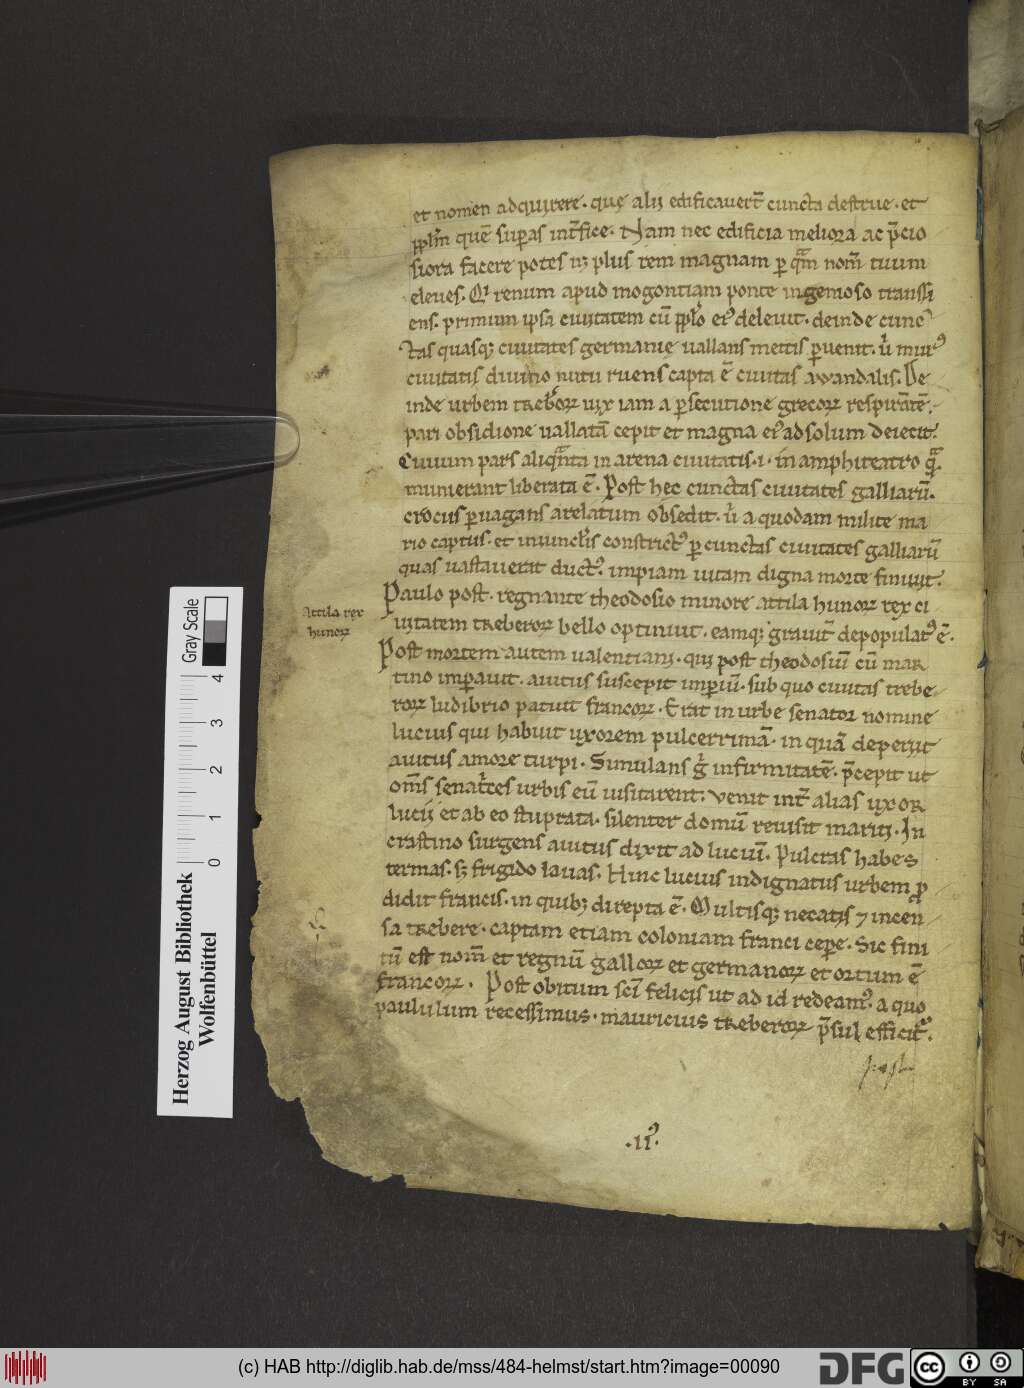 et nomen adquirere. quę alij edificauert̄ cuncta destrue. et
pp̄lm̄ quē superas int̄fice. Nam nec edificia meliora ac p̄cio
siora facere potes nꝫ plus rem magnam ꝑ quam nom̄ tuum
eleues. Qi renum apud mogontiam ponte ingenioso transsi
ens. primum ipsa ciuitatem cū pp̄lo eiꝰ deleuit. deinde cunc
tas quasqꝫ ciuitates germanię uallans mettis ꝑuenit. ů muꝰ
ciuitatis diuino nutu ruens capta ē ciuitas awandalis. De
inde urbem treborꝝ uix iam a ꝑsecutione grecorꝝ respirātē.
pari obsidione uallatā cepit et magna eiꝰ ad solum deiecit.
Ciuium pars aliquanta in arena ciuitatis .i. in amphiteatro qᷓ
munierant liberata ē. Post hec cunctas ciuitates galliarū.
crocus ꝑuagans arelatum obsedit. ů a quodam milite ma
rio captus. et inuinclis constrictꝰ ꝑ cunctas ciuitates galliarū
quas uastauerat ductꝰ. impiam uitam digna morte finiuit.
Paulo post. regnante theodosio minore attila hunorꝝ rex ci
uitatem treberorꝝ bello optinuit. eamqꝫ grauit̄ depopulatꝰ ē.
Attila rex
hunorꝝ
Post mortem autem ualentiani. qui post theodosiū cū mar
tino imꝑauit. auitus suscepit imꝑiū. sub quo ciuitas trebe
rorꝝ ludibrio patuit francorꝝ. Erat in urbe senator nomine
lucius qui habuit uxorem pulcerrimā. in quā deperijt
auitus amore turpi. Simulans g̊ infirmitatē. p̄cepit ut
om̄s senat̊ces urbis eū uisitarent. Venit int̄ alias uxor
lucij et ab eo stuprata. silenter domū reuisit mariti. In
crastino surgens auitus dixit ad luciū. Pulcras habes
termas. sꝫ frigido lauas. Hinc lucius indignatus urbem ꝓ
didit francis. in quibꝫ direpta ē. Multisqꝫ necatis ⁊ incen
sa trebere. captam etiam coloniam franci ceꝑe. Sic fini
tū est nom̄ et regnū gallorꝝ et germanorꝝ et ortum ē
francorꝝ. Post obitum sc̄i felicis ut ad id redeamꝰ. a quo
paululum recessimus. mauricius treberorꝝ p̄sul efficitꝰ.
post
.IIꝰ.
Gray Scale
4
3
2
1
0
Herzog August Bibliothek
Wolfenbüttel
(c) HAB http://diglib.hab.de/mss/484-helmst/start.htm?image=00090
DFG
cc BY SA